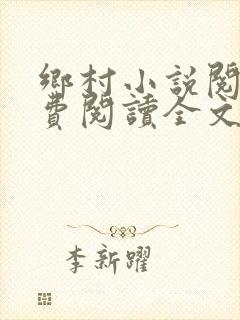 鄉村小說閱
費閱讀全文
李新躍